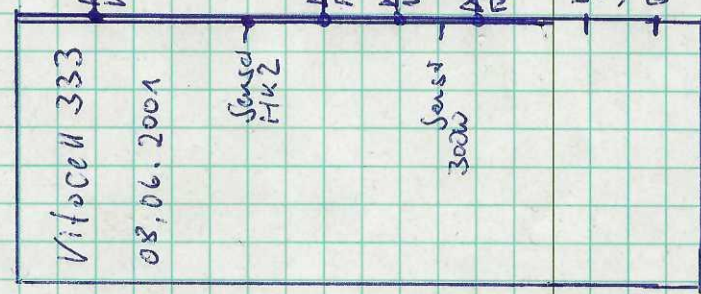 Vitocell 333
08.06.2001
Sensor
HK2
Sensor
300W